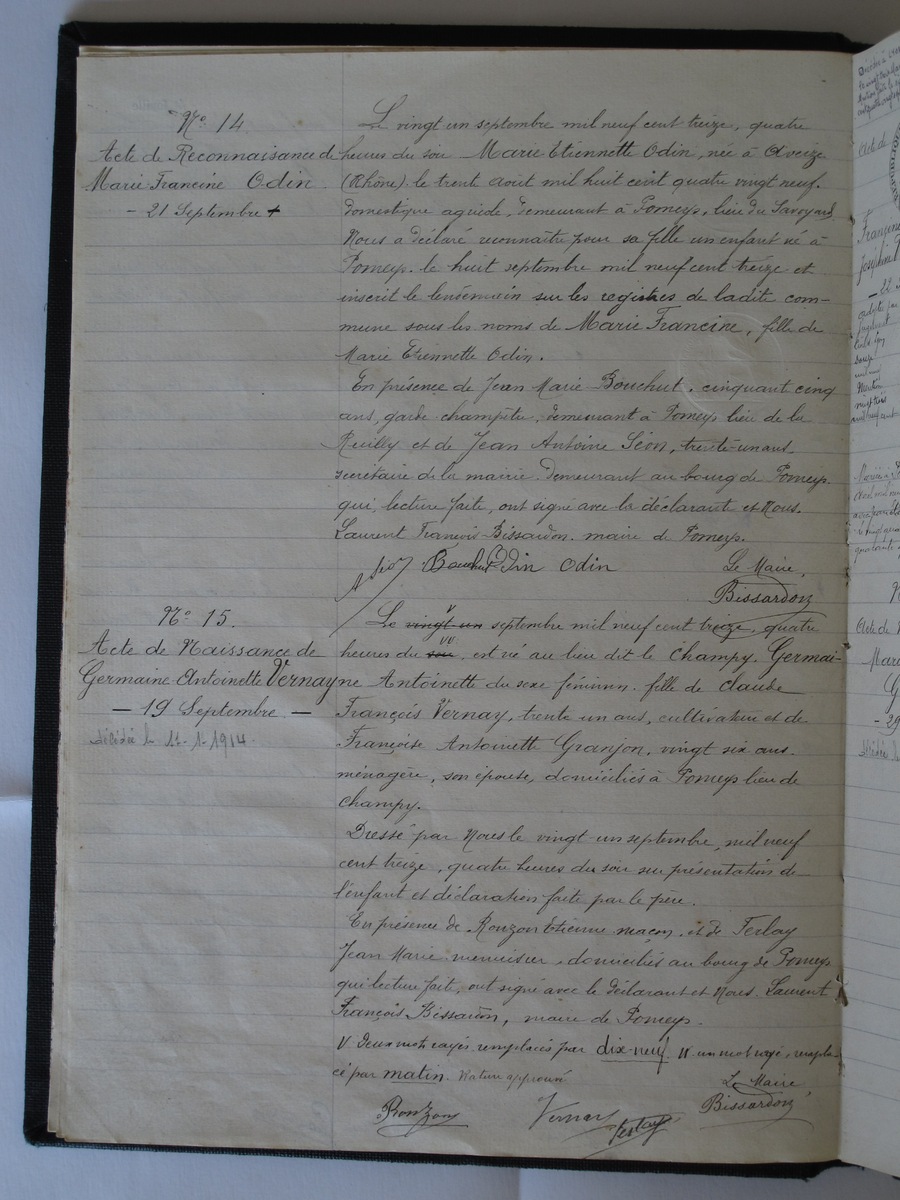 N° 14
Acte de Reconnaissance de
Marie Francine Odin
- 21 Septembre
Le vingt un septembre mil neuf cent treize, quatre
heures du soir Marie Etiennette Odin, née à Aveize
(Rhône) le trente août mil huit cent quatre vingt neuf.
domestique agricole, demeurant à Pomeys, lieu du Savoyard
Nous a déclaré reconnaître pour sa fille un enfant né à
Pomeys. le huit septembre mil neuf cent treize et
inscrit le lendemain sur les registres de ladite com-
mune sous les noms de Marie Francine, fille de
Marie Etiennette Odin.
En présence de Jean Marie Bouchut. cinquant cinq
ans, garde champêtre, demeurant à Pomeys lieu de la
et de Jean Antoine Séon, trente-un ans.
secrétaire de la mairie demeurant au bourg de Pomeys.
qui, lecture faite, ont signé avec la déclarant et Nous.
Laurent François Bissardon. maire de Pomeys.
Séon Bouchut Odin Odin
Le Maire,
Bissardon
N° 15.
Acte de Naissance de
Germaine Antoinette Vernay
— 19 Septembre —
décédée le 11-1-1914
Le vingt un septembre mil neuf cent treize, quatre
heures du soir, est né au lieu dit le Champy. Germai-
ne Antoinette du sexe féminin. fille de Claude
François Vernay, trente un ans, cultivateur et de
Françoise Antoinette Granjon, vingt six ans.
ménagère, son épouse, domiciliés à Pomeys lieu de
Champy.
Dressé par Nous le vingt un septembre, mil neuf
cent treize, quatre heures du soir sur présentation de
l'enfant et déclaration faite par le père.
En présence de Ronzon Etienne maçon, et de Ferlay
Jean Marie menuisier, domiciliés au bourg de Pomeys
qui lecture faite, ont signé avec le déclarant et Nous. Laurent
François Bissardon, maire de Pomeys.
V Deux mots rayés remplacés par dix-neuf. VV un mot rayé, rempla-
cé par matin. Rature approuvé
Le Maire
Bissardon
Ronzon Vernay Ferlay